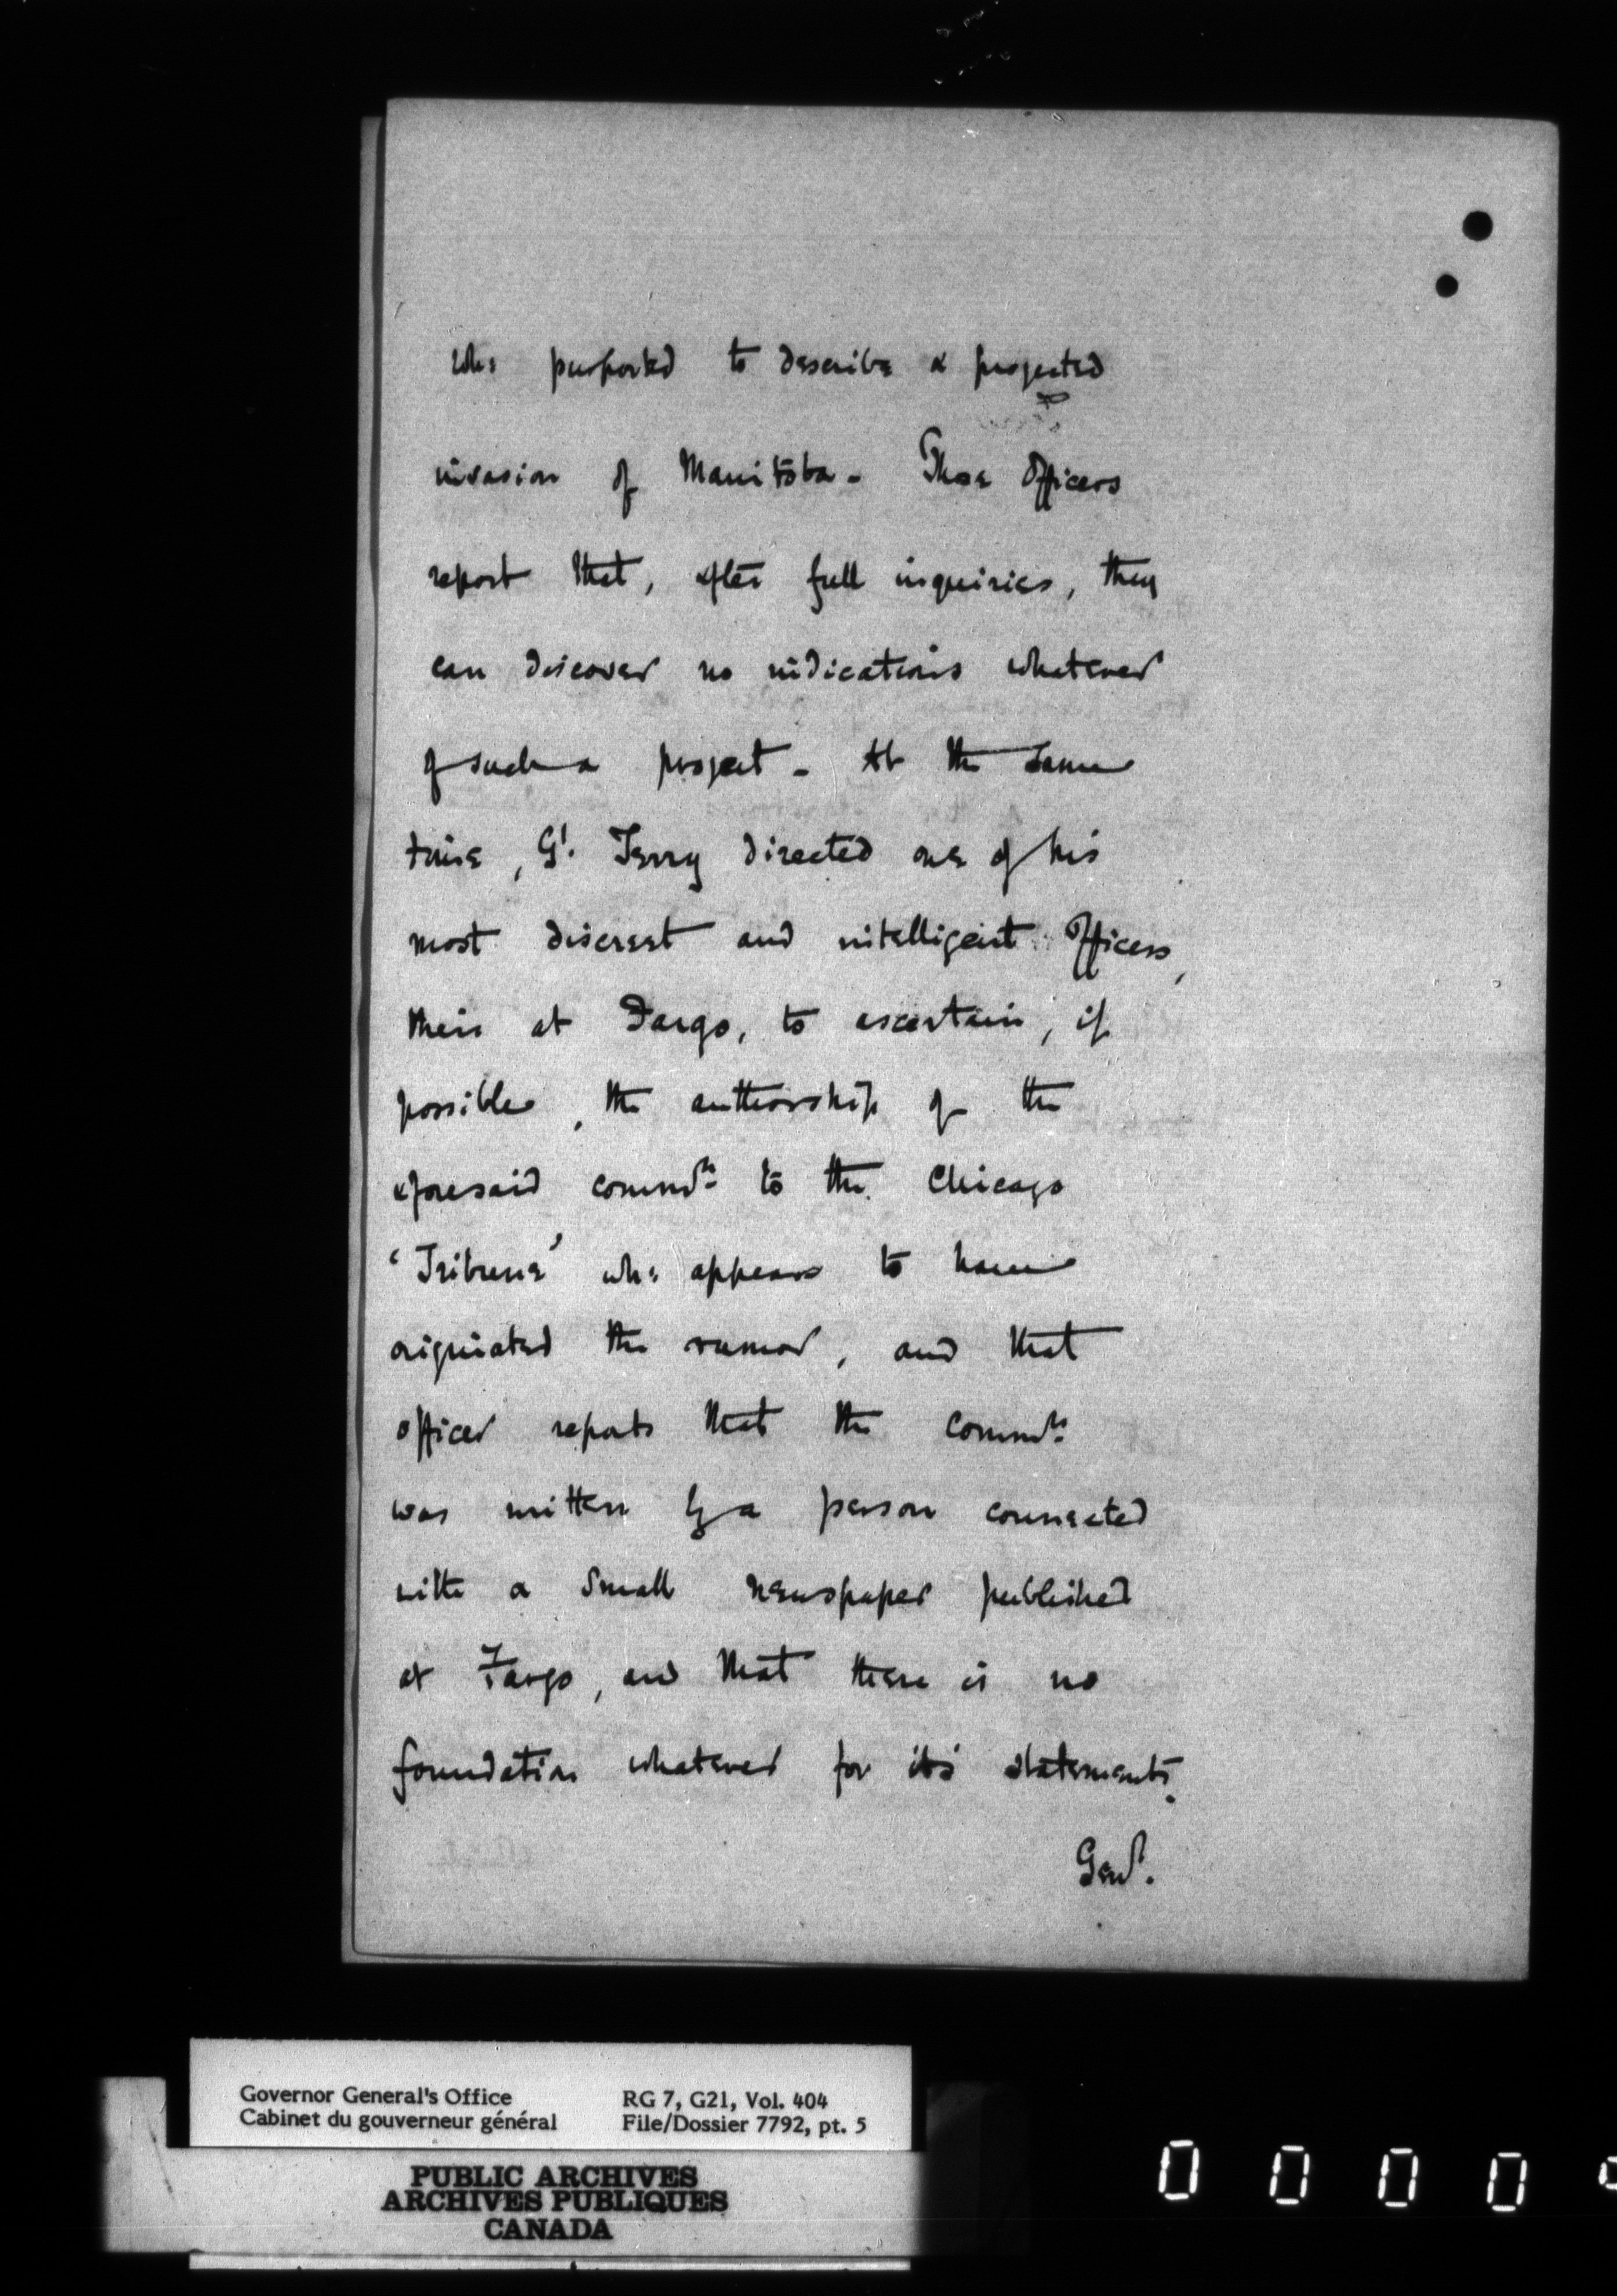 wh: purported to describe a projected
invasion of Manitoba - These Officers
report that, after full inquiries, they
can discover no indications whatever
of such a project - At the same
time, Gl. Terry directed one of his
most discreet and intelligent Officers,
then at Fargo, to ascertain, if
possible, the authorship of the
aforesaid commn: to the Chicago
'Tribune' wh: appears to have
originated the rumor, and that
officer reports that the commn:
was written by a person connected
with a small newspaper published
at Fargo, and that there is no
foundation whatever for its statements.
Genl.
Governor General's Office RG 7, G21, Vol. 404
Cabinet du gouverneur général File/Dossier 7792, pt. 5
PUBLIC ARCHIVES
ARCHIVES PUBLIQUES
CANADA
0 0 0 0